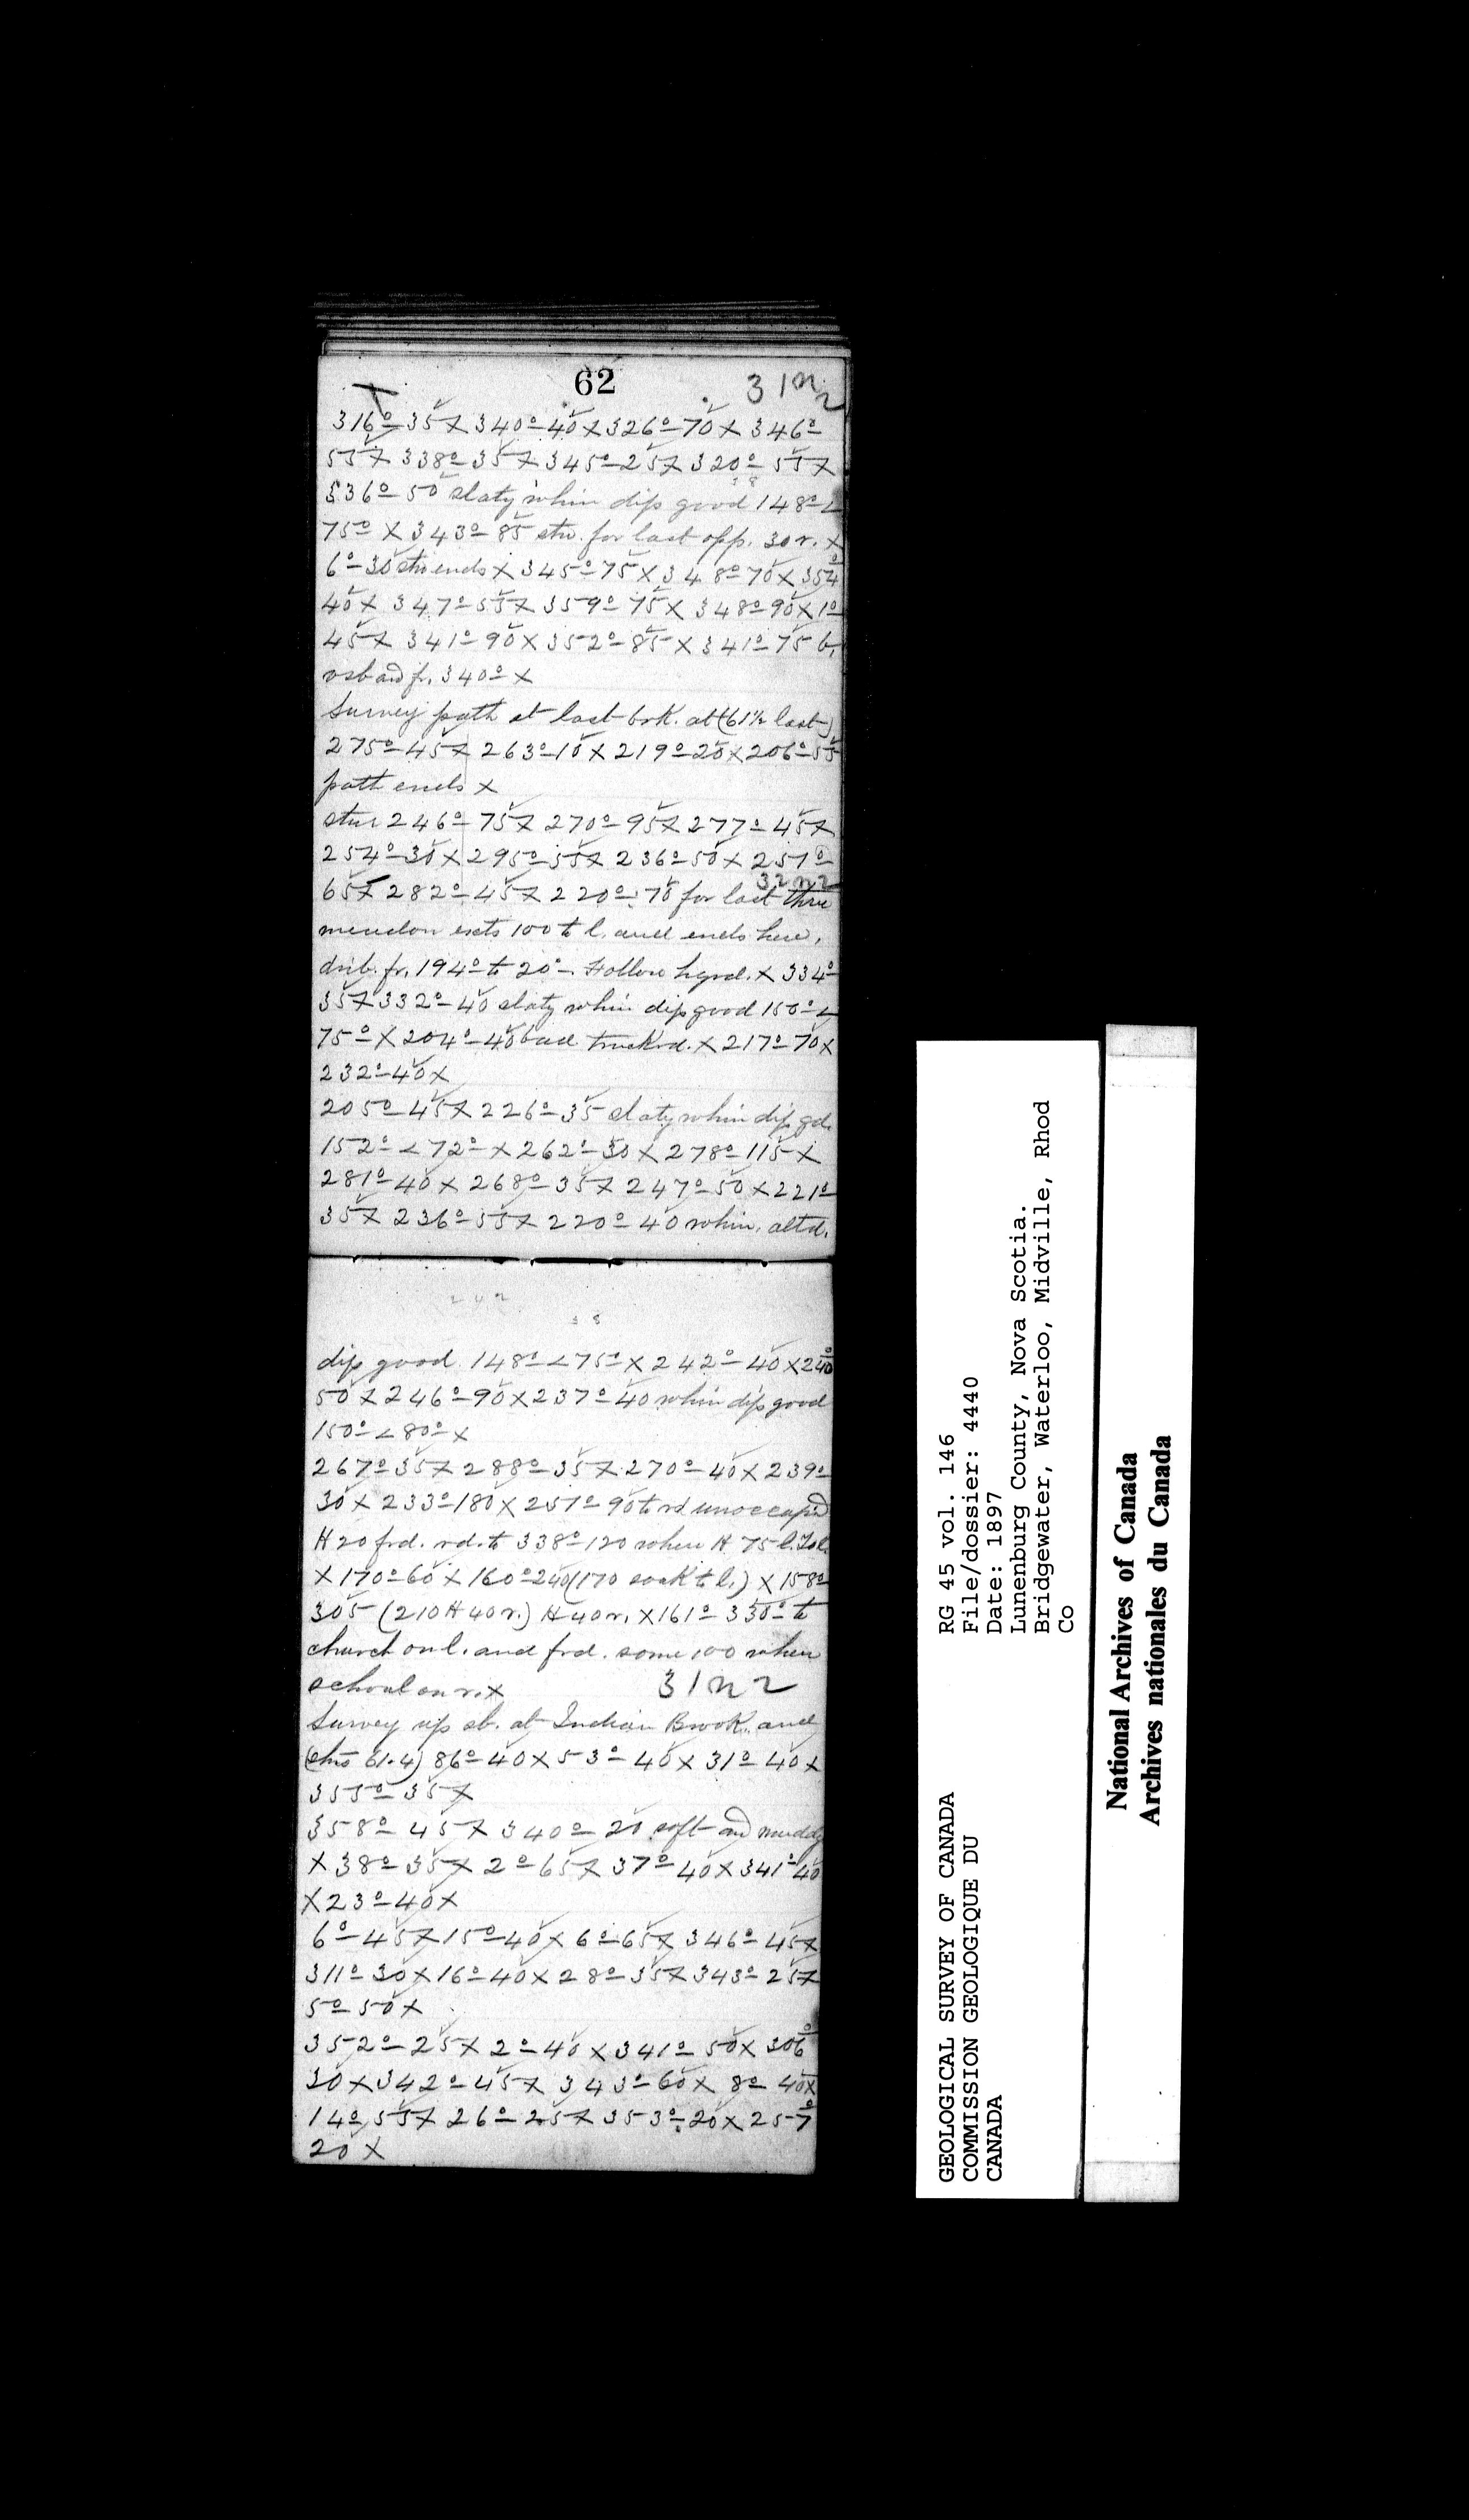 62
31n2
316°–35 X 340°–40 X 326°–70 X 346°–
55 X 338°–35 X 345°–25 X 320°–55 X
336°–50 slaty whin dip good 148°<
75° X 343°–85 stw. for last opp. 30 r. X
6°–30 stw ends X 345°–75 X 348°–70 X 354°
40 X 347°–55 X 359°–75 X 348°–90 X 1°–
45 X 341°–90 X 352°–85 X 341°–75 b.
fr. 340° X
Survey path at last brk. at (61½ last)
275°–45 X 263°–10 X 219°–20 X 206°–55
path ends X
stw 246°–75 X 270°–95 X 277°–45 X
254°–30 X 295°–55 X 236°–50 X 251°
32n2
65 X 282°–45 X 220°–70 for last three
meadow exts 100 to l. and ends here.
fr. 194° to 20°. Follow hgrd. X 334°
35 X 332°–40 slaty whin dip good 150°<
75° X 204°–40 bad truckrd. X 217°–70 X
232°–40 X
205°–45 X 226°–35 slaty whin dip gd.
152°<72° X 262°–30 X 278°–115 X
281°–40 X 268°–35 X 247°–50 X 221°
35 X 236°–55 X 220°–40 whin. altd.
dip good 148°<75° X 242°–40 X 240°
50 X 246°–90 X 237°–40 whin dip good
150°<80° X
267°–35 X 288°–35 X 270°–40 X 239°
30 X 233°–180 X 251°–90 to rd unoccupied
H 20 frd. rd. to 338°–120 where H 75 l.
X 170°–60 X 160°–240 (170 soak to l.) X 158°
305 (210 H 40 r.) H 40 r. X 161°–330 to
church on l. and frd. some 100 when
school on r. X
31n2
Survey up sb. at Indian Brook and
(stw 61.4) 86°–40 X 53°–40 X 31°–40 X
355°–35 X
358°–45 X 340°–20 soft and muddy
X 38°–35 X 2°–65 X 37°–40 X 341°–40
X 23°–40 X
6°–45 X 15°–40 X 6°–65 X 346°–45 X
311°–30 X 16°–40 X 28°–35 X 343°–25 X
5°–50 X
352°–25 X 2°–40 X 341°–50 X 306°
30 X 342°–45 X 343°–60 X 8°–40 X
14°–55 X 26°–25 X 353°–20 X 257°
20 X
GEOLOGICAL SURVEY OF CANADA
COMMISSION GEOLOGIQUE DU
CANADA
RG 45 vol. 146
File/dossier: 4440
Date: 1897
Lunenburg County, Nova Scotia.
Bridgewater, Waterloo, Midville, Rhod
Co
National Archives of Canada
Archives nationales du Canada